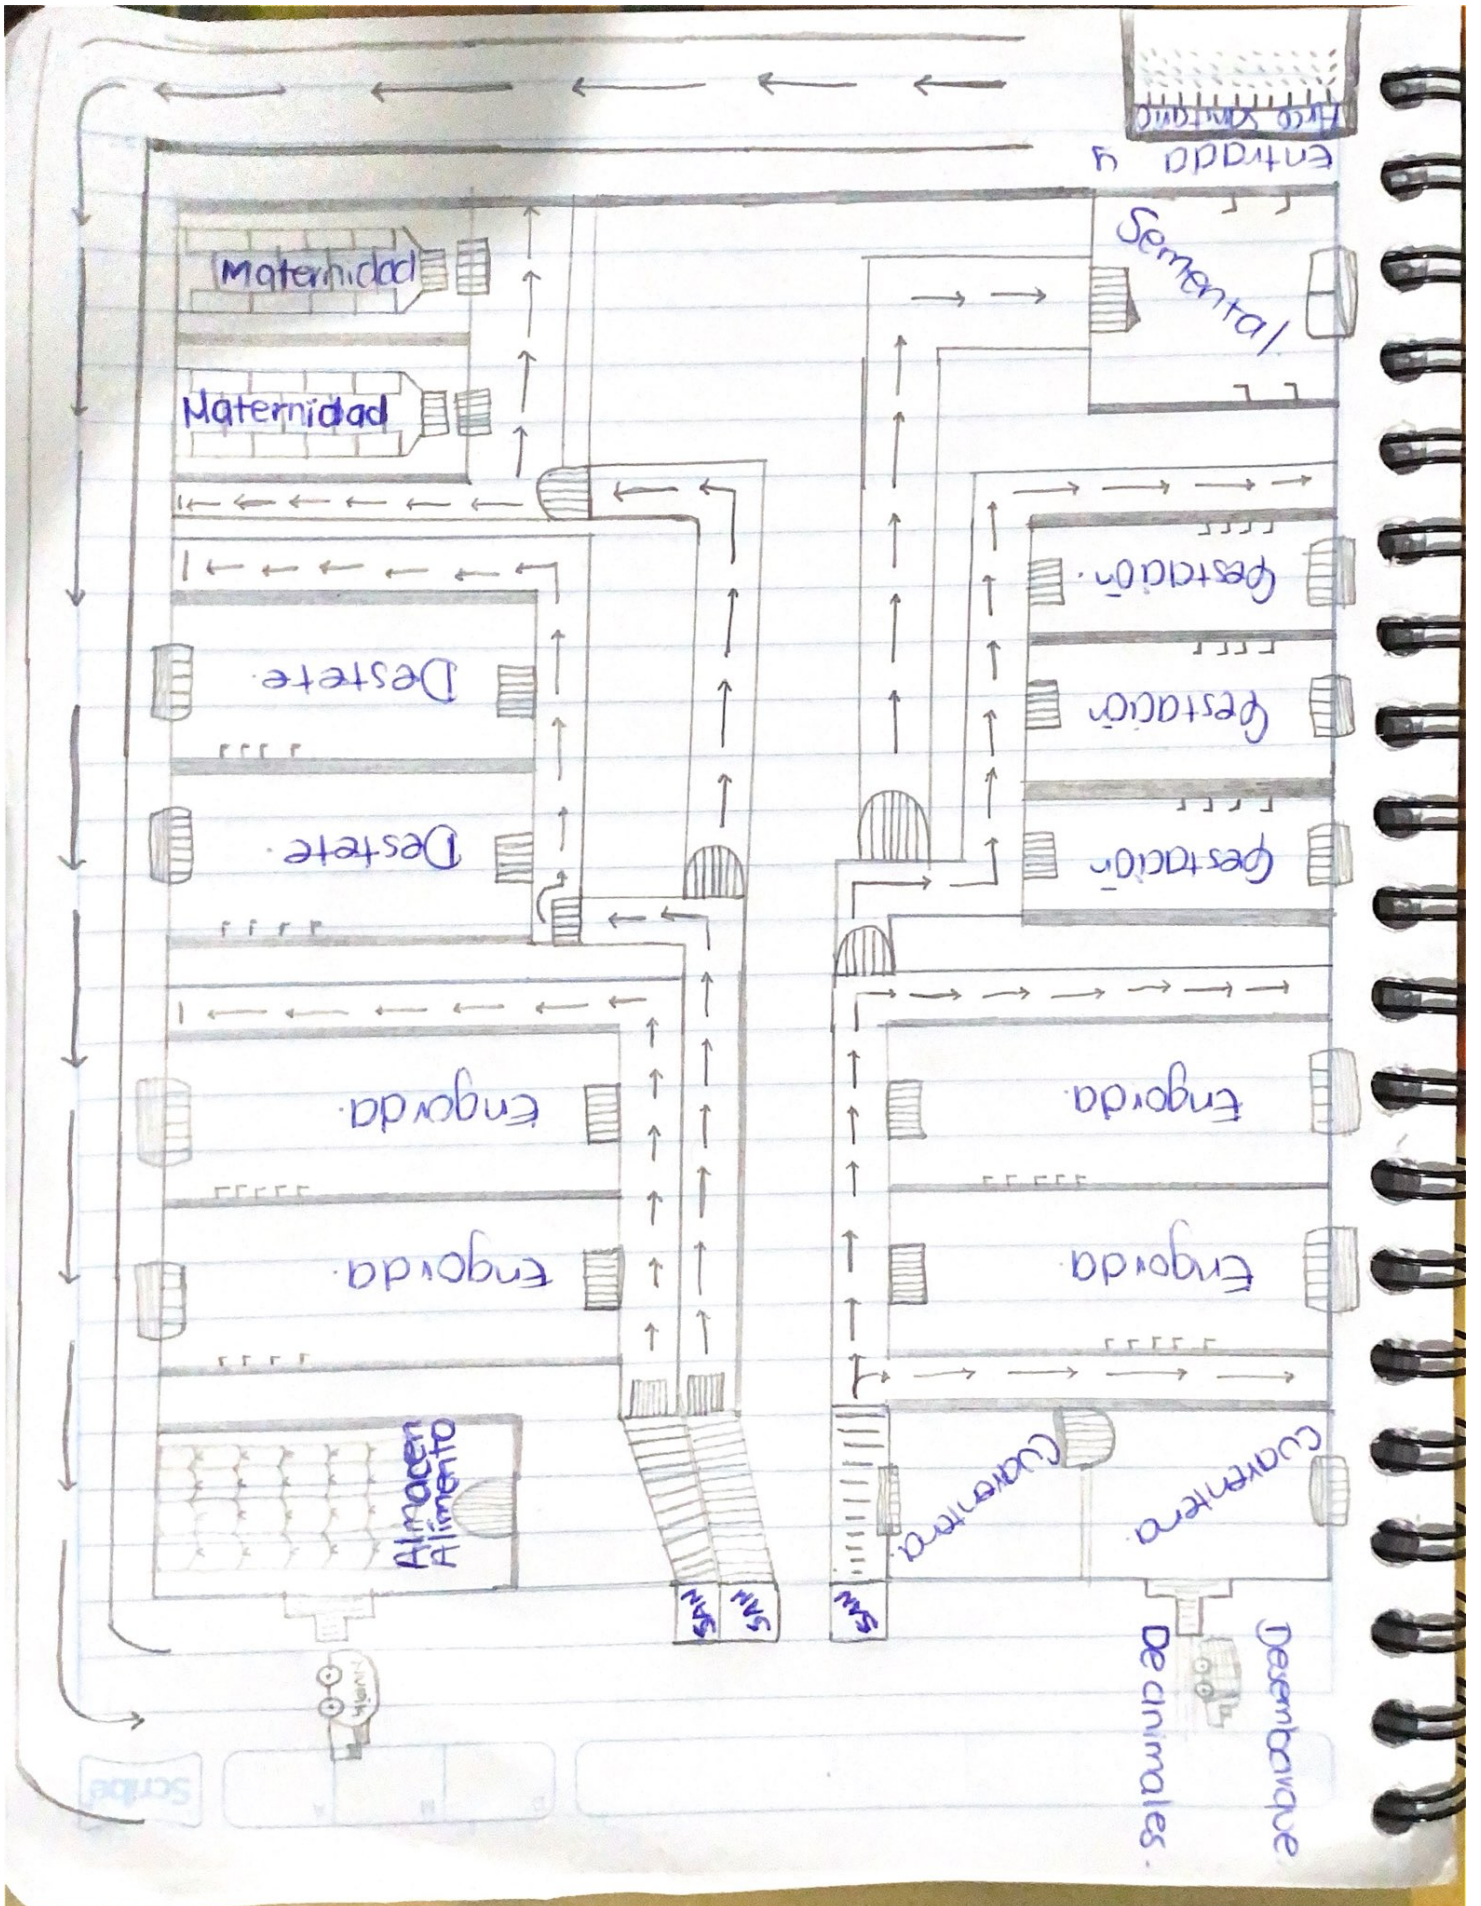 Entrada y
Arco Sanitario
Semental
Maternidad
Maternidad
Gestación.
Destete.
Gestación
Destete.
Gestación
Engorda.
Engorda.
Engorda.
Engorda.
Almacen
Alimento
Cuarentena.
Cuarentena.
SAN
SAN
SAN
Desembarque
De animales.
Scribe